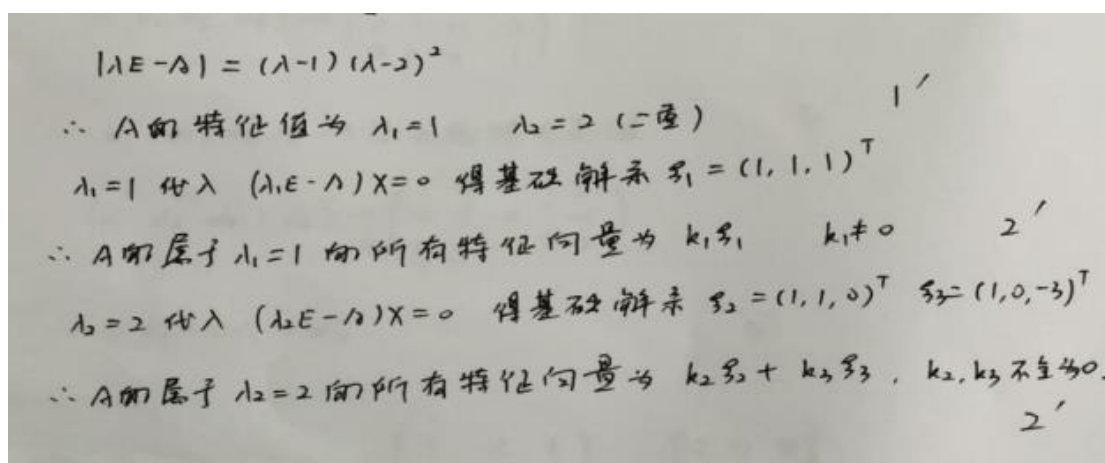 |λE-A| = (λ-1)(λ-2)²
∴ A的特征值为 λ₁=1 λ₂=2 (二重) 1′
λ₁=1 代入 (λ₁E-A)X=0 得基础解系 ξ₁=(1,1,1)ᵀ
∴ A的属于 λ₁=1 的所有特征向量为 k₁ξ₁ k₁≠0 2′
λ₂=2 代入 (λ₂E-A)X=0 得基础解系 ξ₂=(1,1,0)ᵀ ξ₃=(1,0,-3)ᵀ
∴ A的属于 λ₂=2 的所有特征向量为 k₂ξ₂+k₃ξ₃, k₂,k₃不全为0.
2′